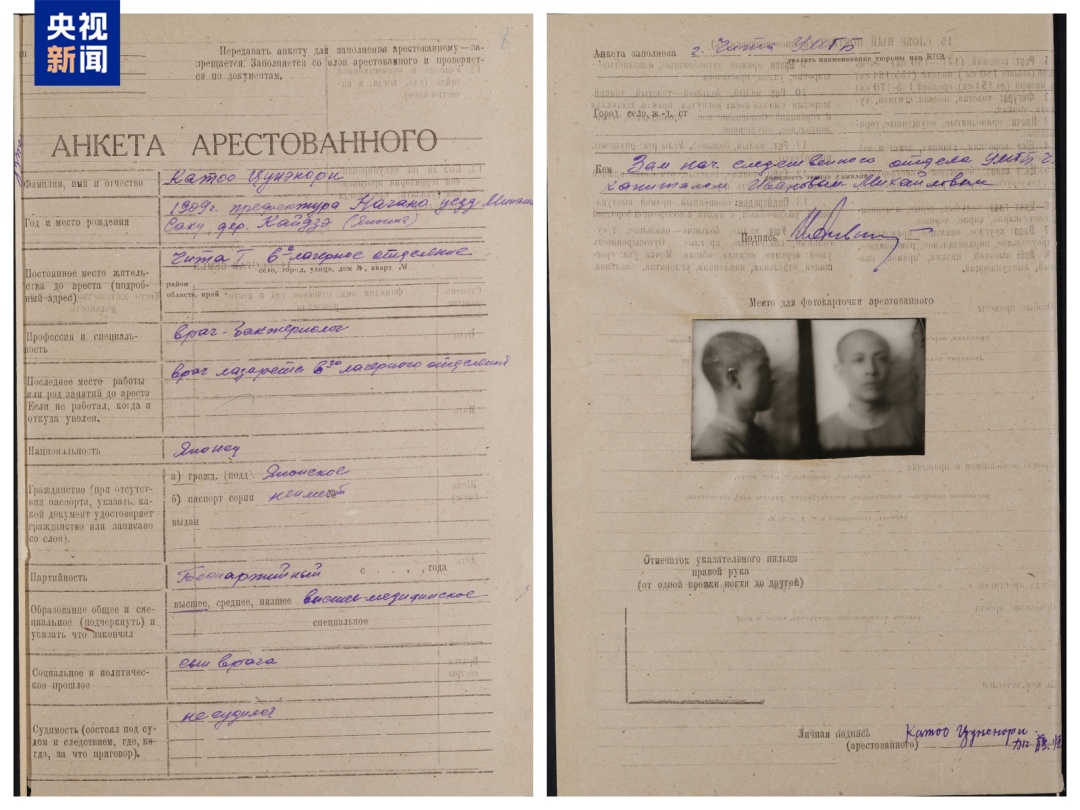 央视
新闻
Передавать анкету для заполнения арестованному—за-
прещается. Заполняется со слов арестованного и проверяет-
ся по документам.
АНКЕТА АРЕСТОВАННОГО
Фамилия, имя и отчество Катоо Цунэнори
Год и место рождения 1909г. префектура Нагано уезд
Саку дер. Кайдзэ (Япония)
Постоянное место житель-
ства до ареста (подроб-
ный адрес) Чита I 6ое лагерное отделение
село, город, улица, дом №, кварт №
район
область, край
Профессия и специаль-
ность врач-бактериолог
Последнее место работы
или род занятий до ареста
Если не работал, когда и
откуда уволен. врач лазарета 6го лагерного отделения
Национальность Японец
Гражданство (при отсутст-
вии паспорта, указать, ка-
кой документ удостоверяет
гражданство или записано
со слов).
а) гражд. (подд.) Японское
б) паспорт серия неимеет
выдан
Партийность Безпартийный с . . . , года
Образование общее и спе-
циальное (подчеркнуть) и
указать что закончил
высшее, среднее, низшее высшее-медицинское
специальное
Социальное и политичес-
кое прошлое сын врача
Судимость (состоял под су-
дом и следствием, где, ко-
гда, за что приговор). не судился
Анкета заполнена г. Чита
указать наименование тюрьмы или КПЗ
Город село, ж.-д. ст
Кем Зам нач. следственного отдела
капитаном Ивановым Михайловым
Подпись
Место для фотокарточки арестованного
Отпечаток указательного пальца
правой рука
(от одной кромки ногтя до другой)
Личная подпись Катоо Цунэнори
(арестованного)